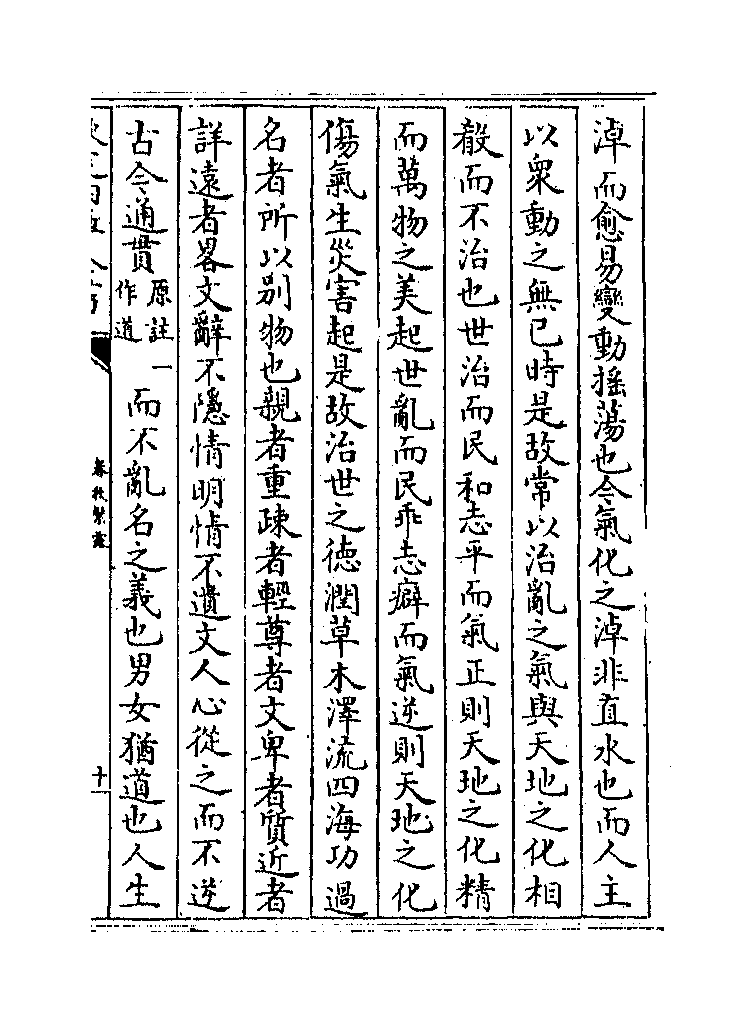 淖而愈易變動揺蕩也今氣化之淖非直水也而人主
以衆動之無已時是故常以治亂之氣與天地之化相
殽而不治也世治而民和志平而氣正則天地之化精
而萬物之美起世亂而民乖志癖而氣逆則天地之化
傷氣生災害起是故治世之徳潤草木澤流四海功過
名者所以别物也親者重疎者輕尊者文卑者質近者
詳遠者畧文辭不隱情明情不遺文人心從之而不逆
古今通貫原註一作道而不亂名之義也男女猶道也人生
春秋繁露
十一